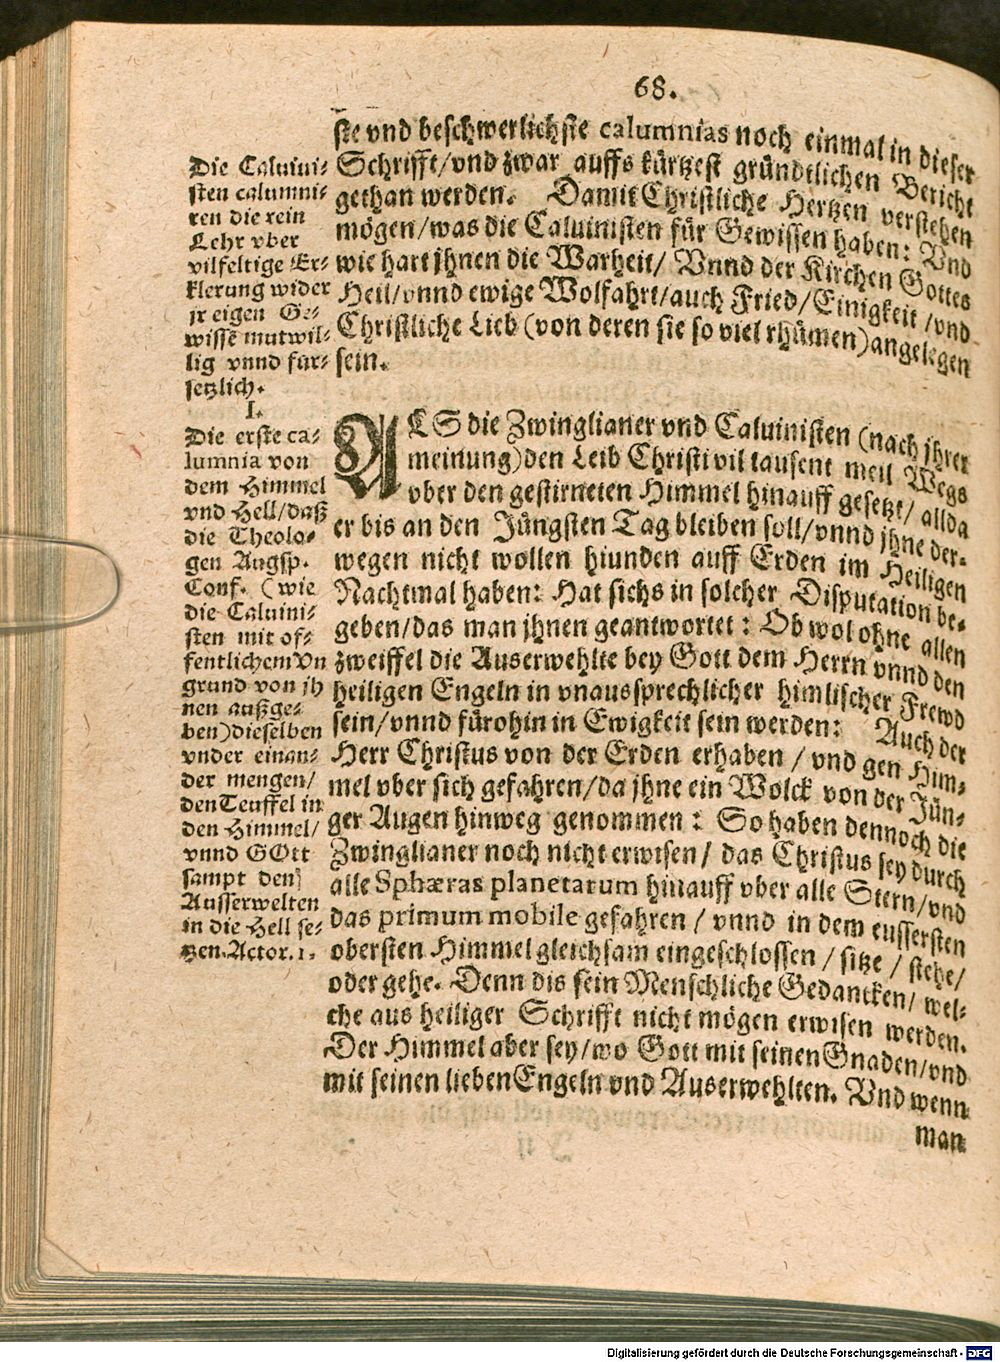 68.
ste vnd beschwerlichste calumnias noch einmal in dieser
Schrifft/vnd zwar auffs kürtzest gründtlichen Bericht
gethan werden. Damit Christliche Hertzen verstehen
mögen/was die Caluinisten für Gewissen haben: Vnd
wie hart jhnen die Warheit/ Vnnd der Kirchen Gottes
Heil/vnnd ewige Wolfahrt/auch Fried/Einigkeit/vnd
Christliche Lieb (von deren sie so viel rhümen) angelegen
sein.
Die Caluini-
sten calumni-
ren die rein
Lehr vber
vilfeltige Er-
klerung wider
jr eigen Ge-
wisse mutwil-
lig vnnd für-
setzlich.
I.
Die erste ca-
lumnia von
dem Himmel
vnd Hell/daß
die Theolo-
gen Augsp.
Conf. (wie
die Caluini-
sten mit of-
fentlichem Vn
grund von jh
nen außge-
ben) dieselben
vnder einan-
der mengen/
den Teuffel in
den Himmel/
vnnd GOtt
sampt den
Ausserwelten
in die Hell se-
tzen. Actor. 1.
ALS die Zwinglianer vnd Caluinisten (nach jhrer
meinung) den Leib Christi vil tausent meil Wegs
vber den gestirneten Himmel hinauff gesetzt/ allda
er bis an den Jüngsten Tag bleiben soll/vnnd jhne der-
wegen nicht wollen hiunden auff Erden im Heiligen
Nachtmal haben: Hat sichs in solcher Disputation be-
geben/das man jhnen geantwortet: Ob wol ohne allen
zweiffel die Auserwehlte bey Gott dem Herrn vnnd den
heiligen Engeln in vnaussprechlicher himlischer Frewd
sein/vnnd fürohin in Ewigkeit sein werden: Auch der
Herr Christus von der Erden erhaben / vnd gen Him-
mel vber sich gefahren/da jhne ein Wolck von der Jün-
ger Augen hinweg genommen: So haben dennoch die
Zwinglianer noch nicht erwisen/ das Christus sey durch
alle Sphæras planetarum hinauff vber alle Stern/vnd
das primum mobile gefahren / vnnd in dem eussersten
obersten Himmel gleichsam eingeschlossen / sitze / stehe/
oder gehe. Denn dis sein Menschliche Gedancken/ wel-
che aus heiliger Schrifft nicht mögen erwisen werden.
Der Himmel aber sey/wo Gott mit seinen Gnaden/vnd
mit seinen lieben Engeln vnd Auserwehlten. Vnd wenn
man
Digitalisierung gefördert durch die Deutsche Forschungsgemeinschaft - DFG